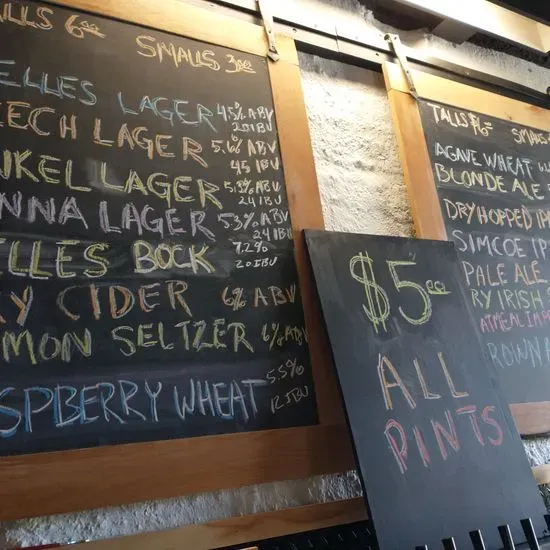 ALLS 6.00 SMALLS 3.00
ELLES LAGER 4.5% ABV
20 IBU
ECH LAGER 5.6% ABV
45 IBU
NKEL LAGER 5.3% ABV
24 IBU
NNA LAGER 5.3% ABV
24 IBU
ELLES BOCK 7.2%
20 IBU
Y CIDER 6% ABV
MON SELTZER 6% ABV
SPBERRY WHEAT 5.5%
12 IBU
$5.00
ALL
PINTS
TALLS $6.00 SMALLS
AGAVE WHEAT
BLONDE ALE
DRY HOPPED IP
SIMCOE IP
PALE ALE
RY IRISH
ATMEAL IMP
ROWN A